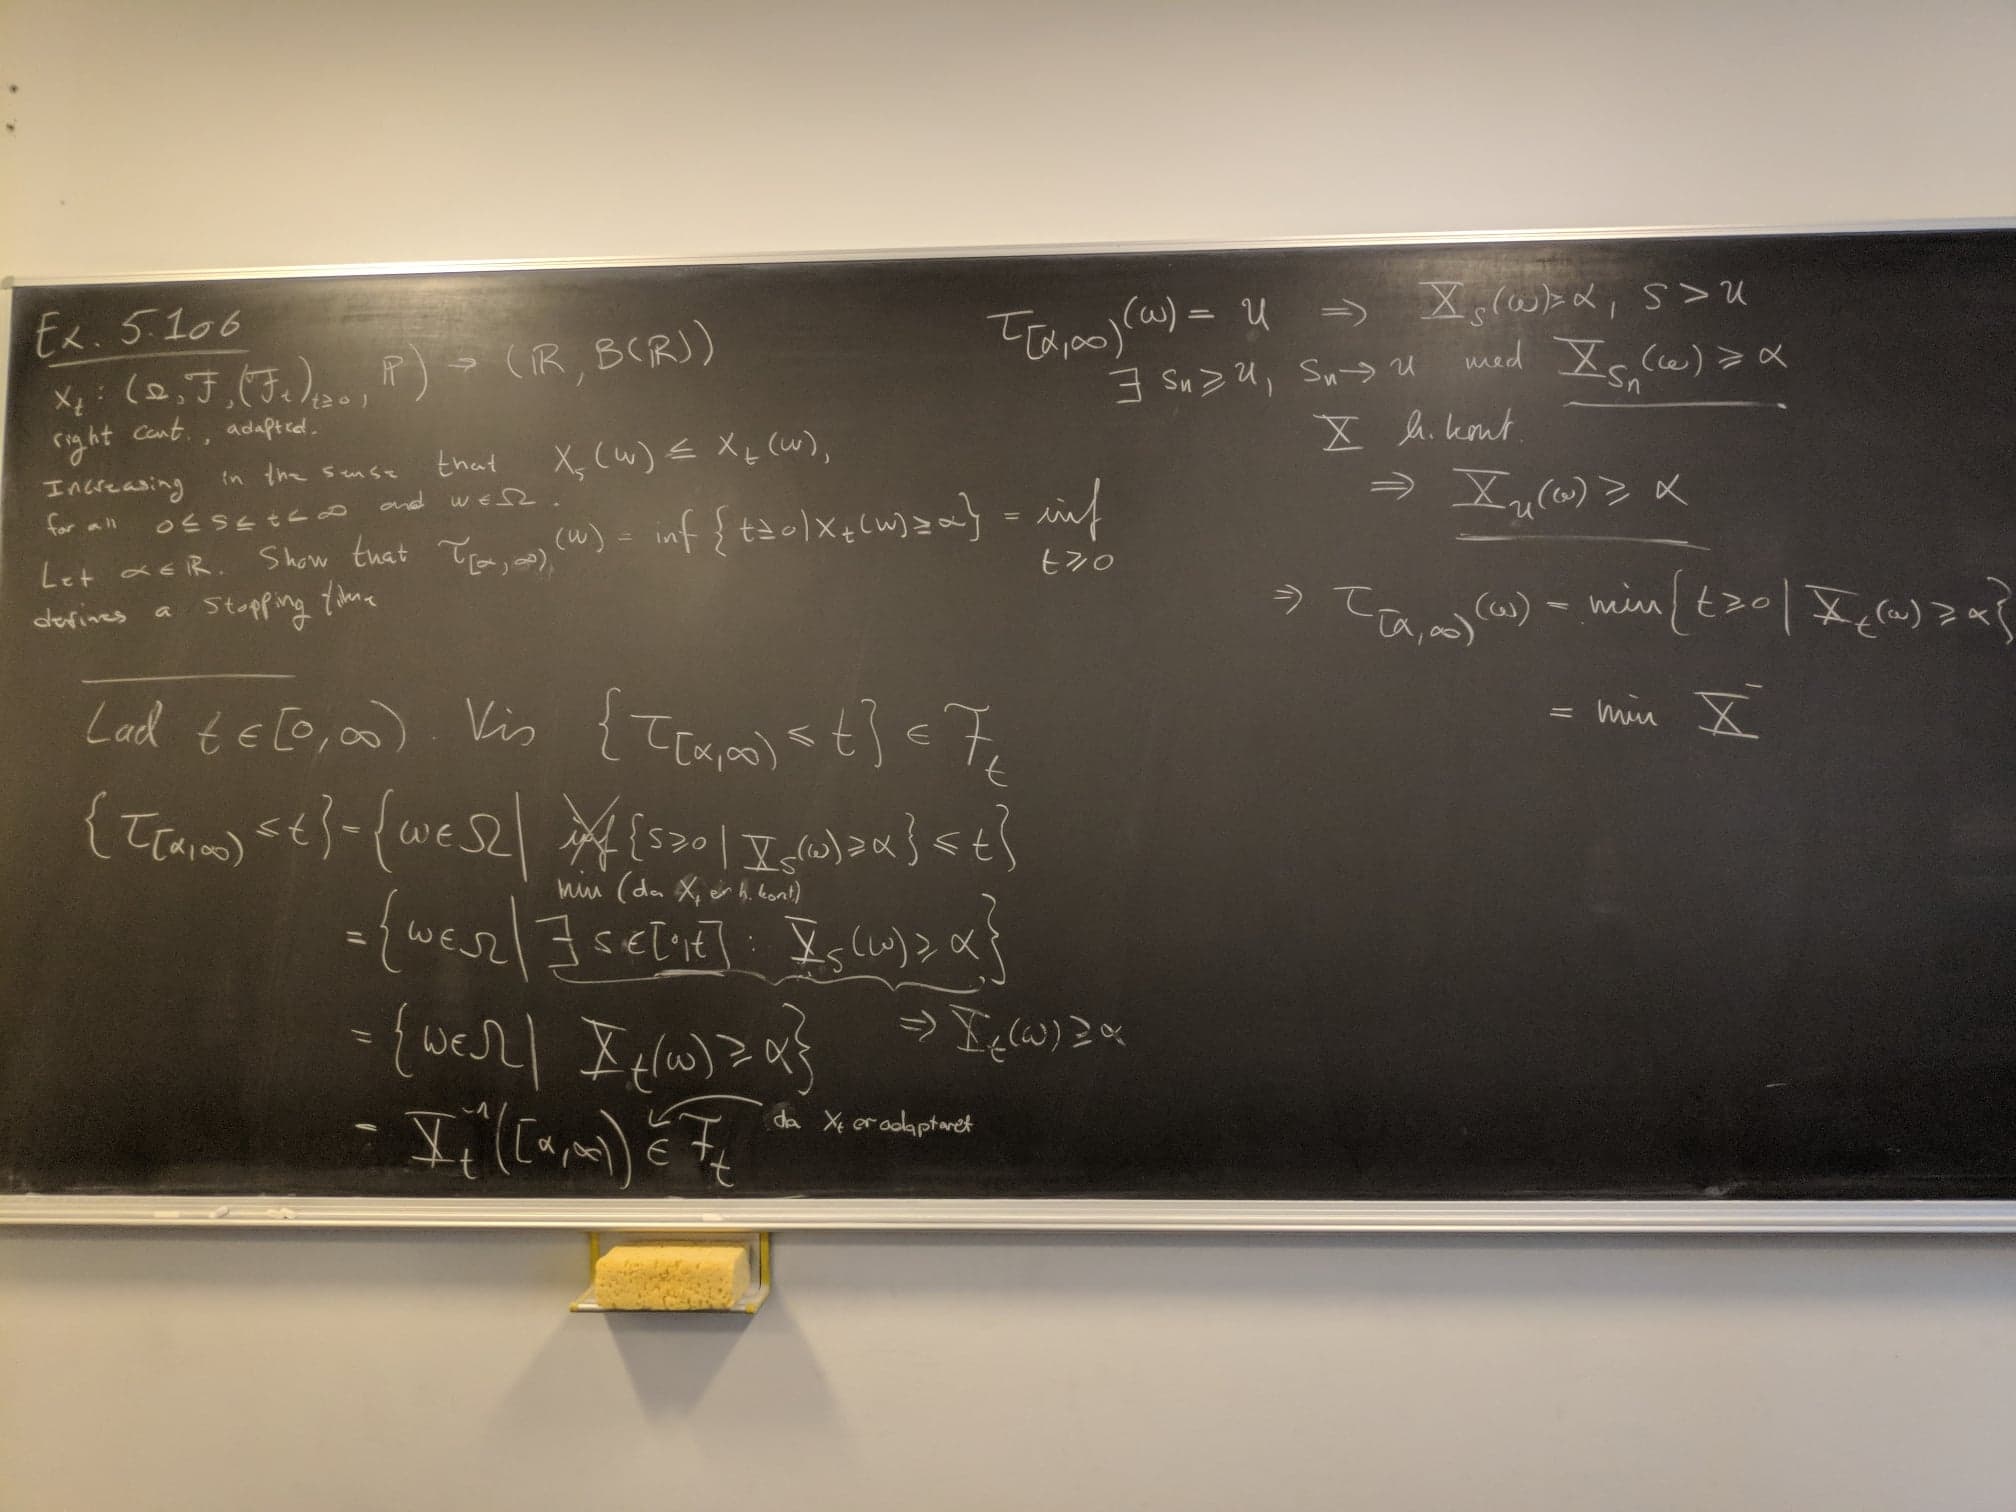 Ex. 5.106
X_t : (Ω, F, (F_t)_{t≥0}, P) → (R, B(R))
right cont., adapted.
Increasing in the sense that X_s(w) ≤ X_t(w),
for all 0≤s≤t<∞ and w∈Ω.
Let α∈R. Show that τ_{[α,∞)}(w) = inf{t≥0|X_t(w)≥α} = inf_{t≥0}
derines a stopping time
Lad t∈[0,∞). Vis {τ_{[α,∞)} ≤ t} ∈ F_t
{τ_{[α,∞)} ≤ t} = {ω∈Ω| inf{s≥0 | X_s(ω)≥α} ≤ t}
min (da X_t er h. kont)
= {ω∈Ω | ∃ s∈[0,t] : X_s(ω) ≥ α}
= {ω∈Ω | X_t(ω) ≥ α} ⇒ X_t(ω) ≥ α
= X_t^{-1}([α,∞)) ∈ F_t da X_t er adapteret
τ_{[α,∞)}(ω) = u ⇒ X_s(ω)≥α, s>u
∃ s_n ≥ u, s_n → u med X_{s_n}(ω) ≥ α
X h. kont.
⇒ X_u(ω) ≥ α
⇒ τ_{[α,∞)}(ω) = min{t≥0 | X_t(ω) ≥ α}
= min X^-